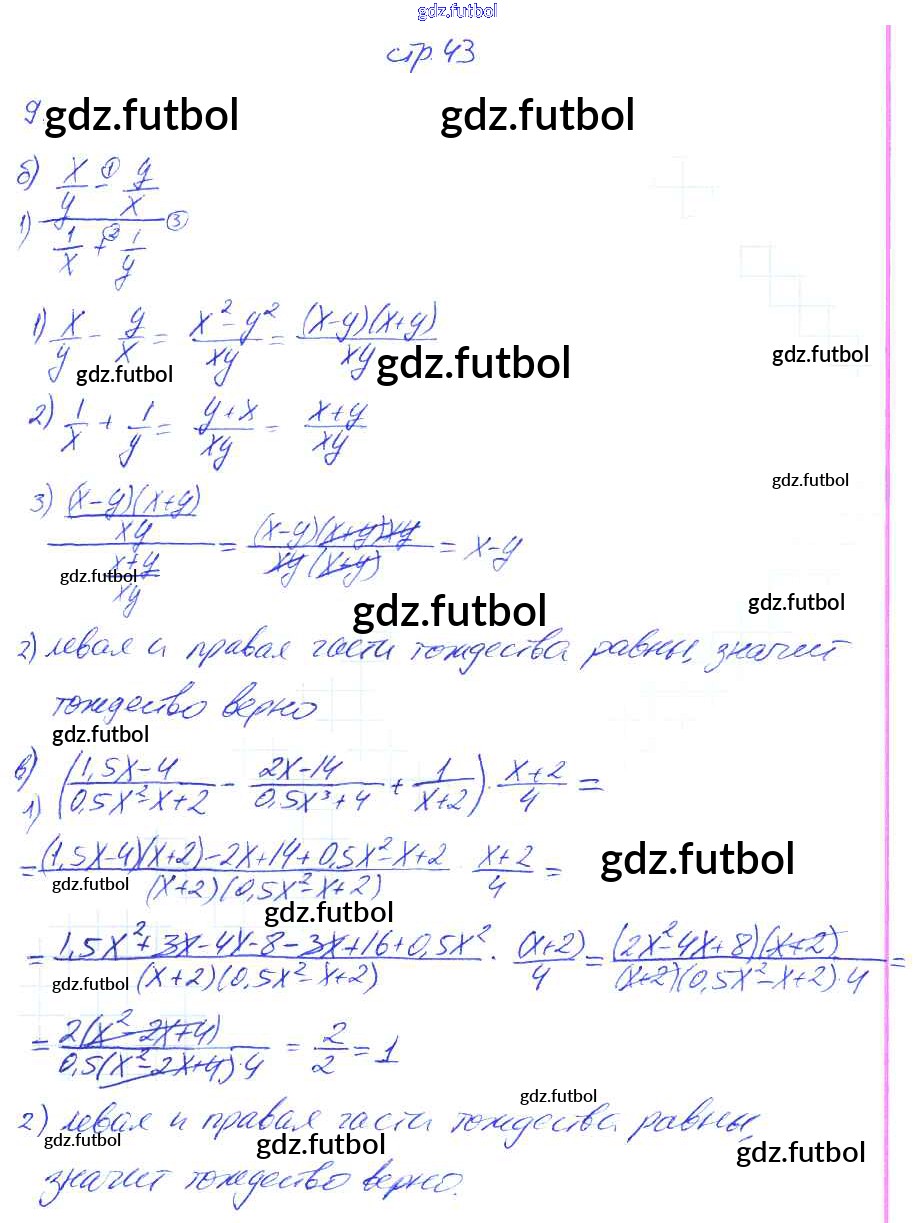 gdz.futbol
стр. 43
9. gdz.futbol gdz.futbol
б) x/y - ① y/x
1) ③
1/x + ② 1/y
1) x/y - y/x = (x² - y²)/(xy) = ((x-y)(x+y))/(xy)
gdz.futbol gdz.futbol gdz.futbol
2) 1/x + 1/y = (y+x)/(xy) = (x+y)/(xy)
gdz.futbol
3) ((x-y)(x+y)/(xy))/((x+y)/(xy)) = ((x-y)(x+y)xy)/(xy(x+y)) = x-y
gdz.futbol gdz.futbol gdz.futbol
2) левая и правая части тождества равны, значит
тождество верно
gdz.futbol
в)
1) ((1,5x-4)/(0,5x²-x+2) - (2x-14)/(0,5x³+4) + 1/(x+2)) · (x+2)/4 =
= ((1,5x-4)(x+2)-2x+14+0,5x²-x+2)/((x+2)(0,5x²-x+2)) · (x+2)/4 =
gdz.futbol gdz.futbol gdz.futbol
= (1,5x²+3x-4x-8-3x+16+0,5x²)/((x+2)(0,5x²-x+2)) · (x+2)/4 = ((2x²-4x+8)(x+2))/((x+2)(0,5x²-x+2)·4) =
gdz.futbol
= (2(x²-2x+4))/(0,5(x²-2x+4)·4) = 2/2 = 1
gdz.futbol
2) левая и правая части тождества равны,
gdz.futbol gdz.futbol gdz.futbol
значит тождество верно.